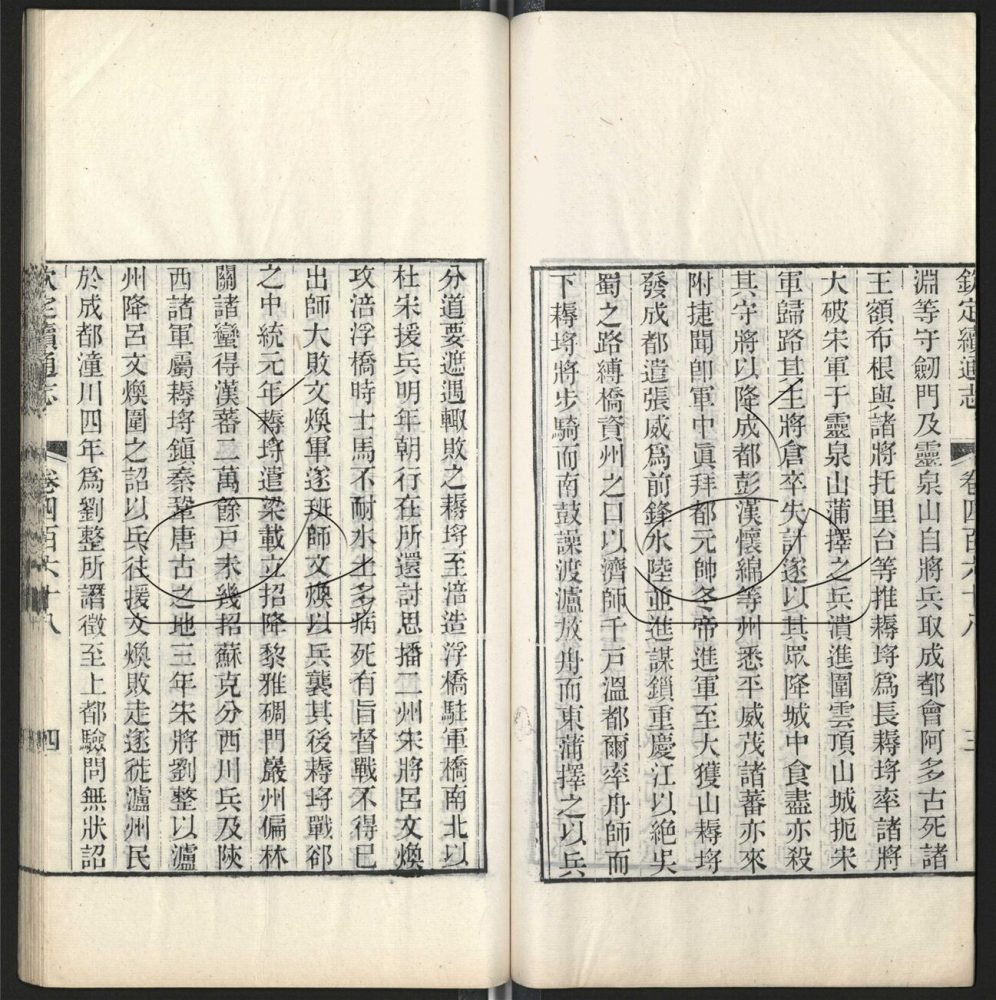 欽定續通志 卷四百六十八 三
淵等守劒門及靈泉山自將兵取成都會阿多古死諸
王額布根與諸將托里台等推耨埒爲長耨埒率諸將
大破宋軍于靈泉山蒲擇之兵潰進圍雲頂山城扼宋
軍歸路其主將倉卒失計遂以其眾降城中食盡亦殺
其守將以降成都彭漢懷綿等州悉平威茂諸蕃亦來
附捷聞卽軍中眞拜都元帥冬帝進軍至大獲山耨埒
發成都遣張威爲前鋒水陸並進謀鎖重慶江以絶吳
蜀之路縛橋資州之口以濟師千戸溫都爾率舟師而
下耨埒將步騎而南鼓譟渡瀘放舟而東蒲擇之以兵
分道要遮遇輙敗之耨埒至涪造浮橋駐軍橋南北以
杜宋援兵明年朝行在所還討思播二州宋將呂文煥
攻涪浮橋時士馬不耐水土多病死有旨督戰不得已
出師大敗文煥軍遂班師文煥以兵襲其後耨埒戰郤
之中統元年耨埒遣梁載立招降黎雅碉門巖州偏林
關諸蠻得漢蕃二萬餘戸未幾招蘇克分西川兵及陜
西諸軍屬耨埒鎭秦鞏唐古之地三年宋將劉整以瀘
州降呂文煥圍之詔以兵往援文煥敗走遂徙瀘州民
於成都潼川四年爲劉整所譖徵至上都驗問無狀詔
欽定續通志 卷四百六十八 四